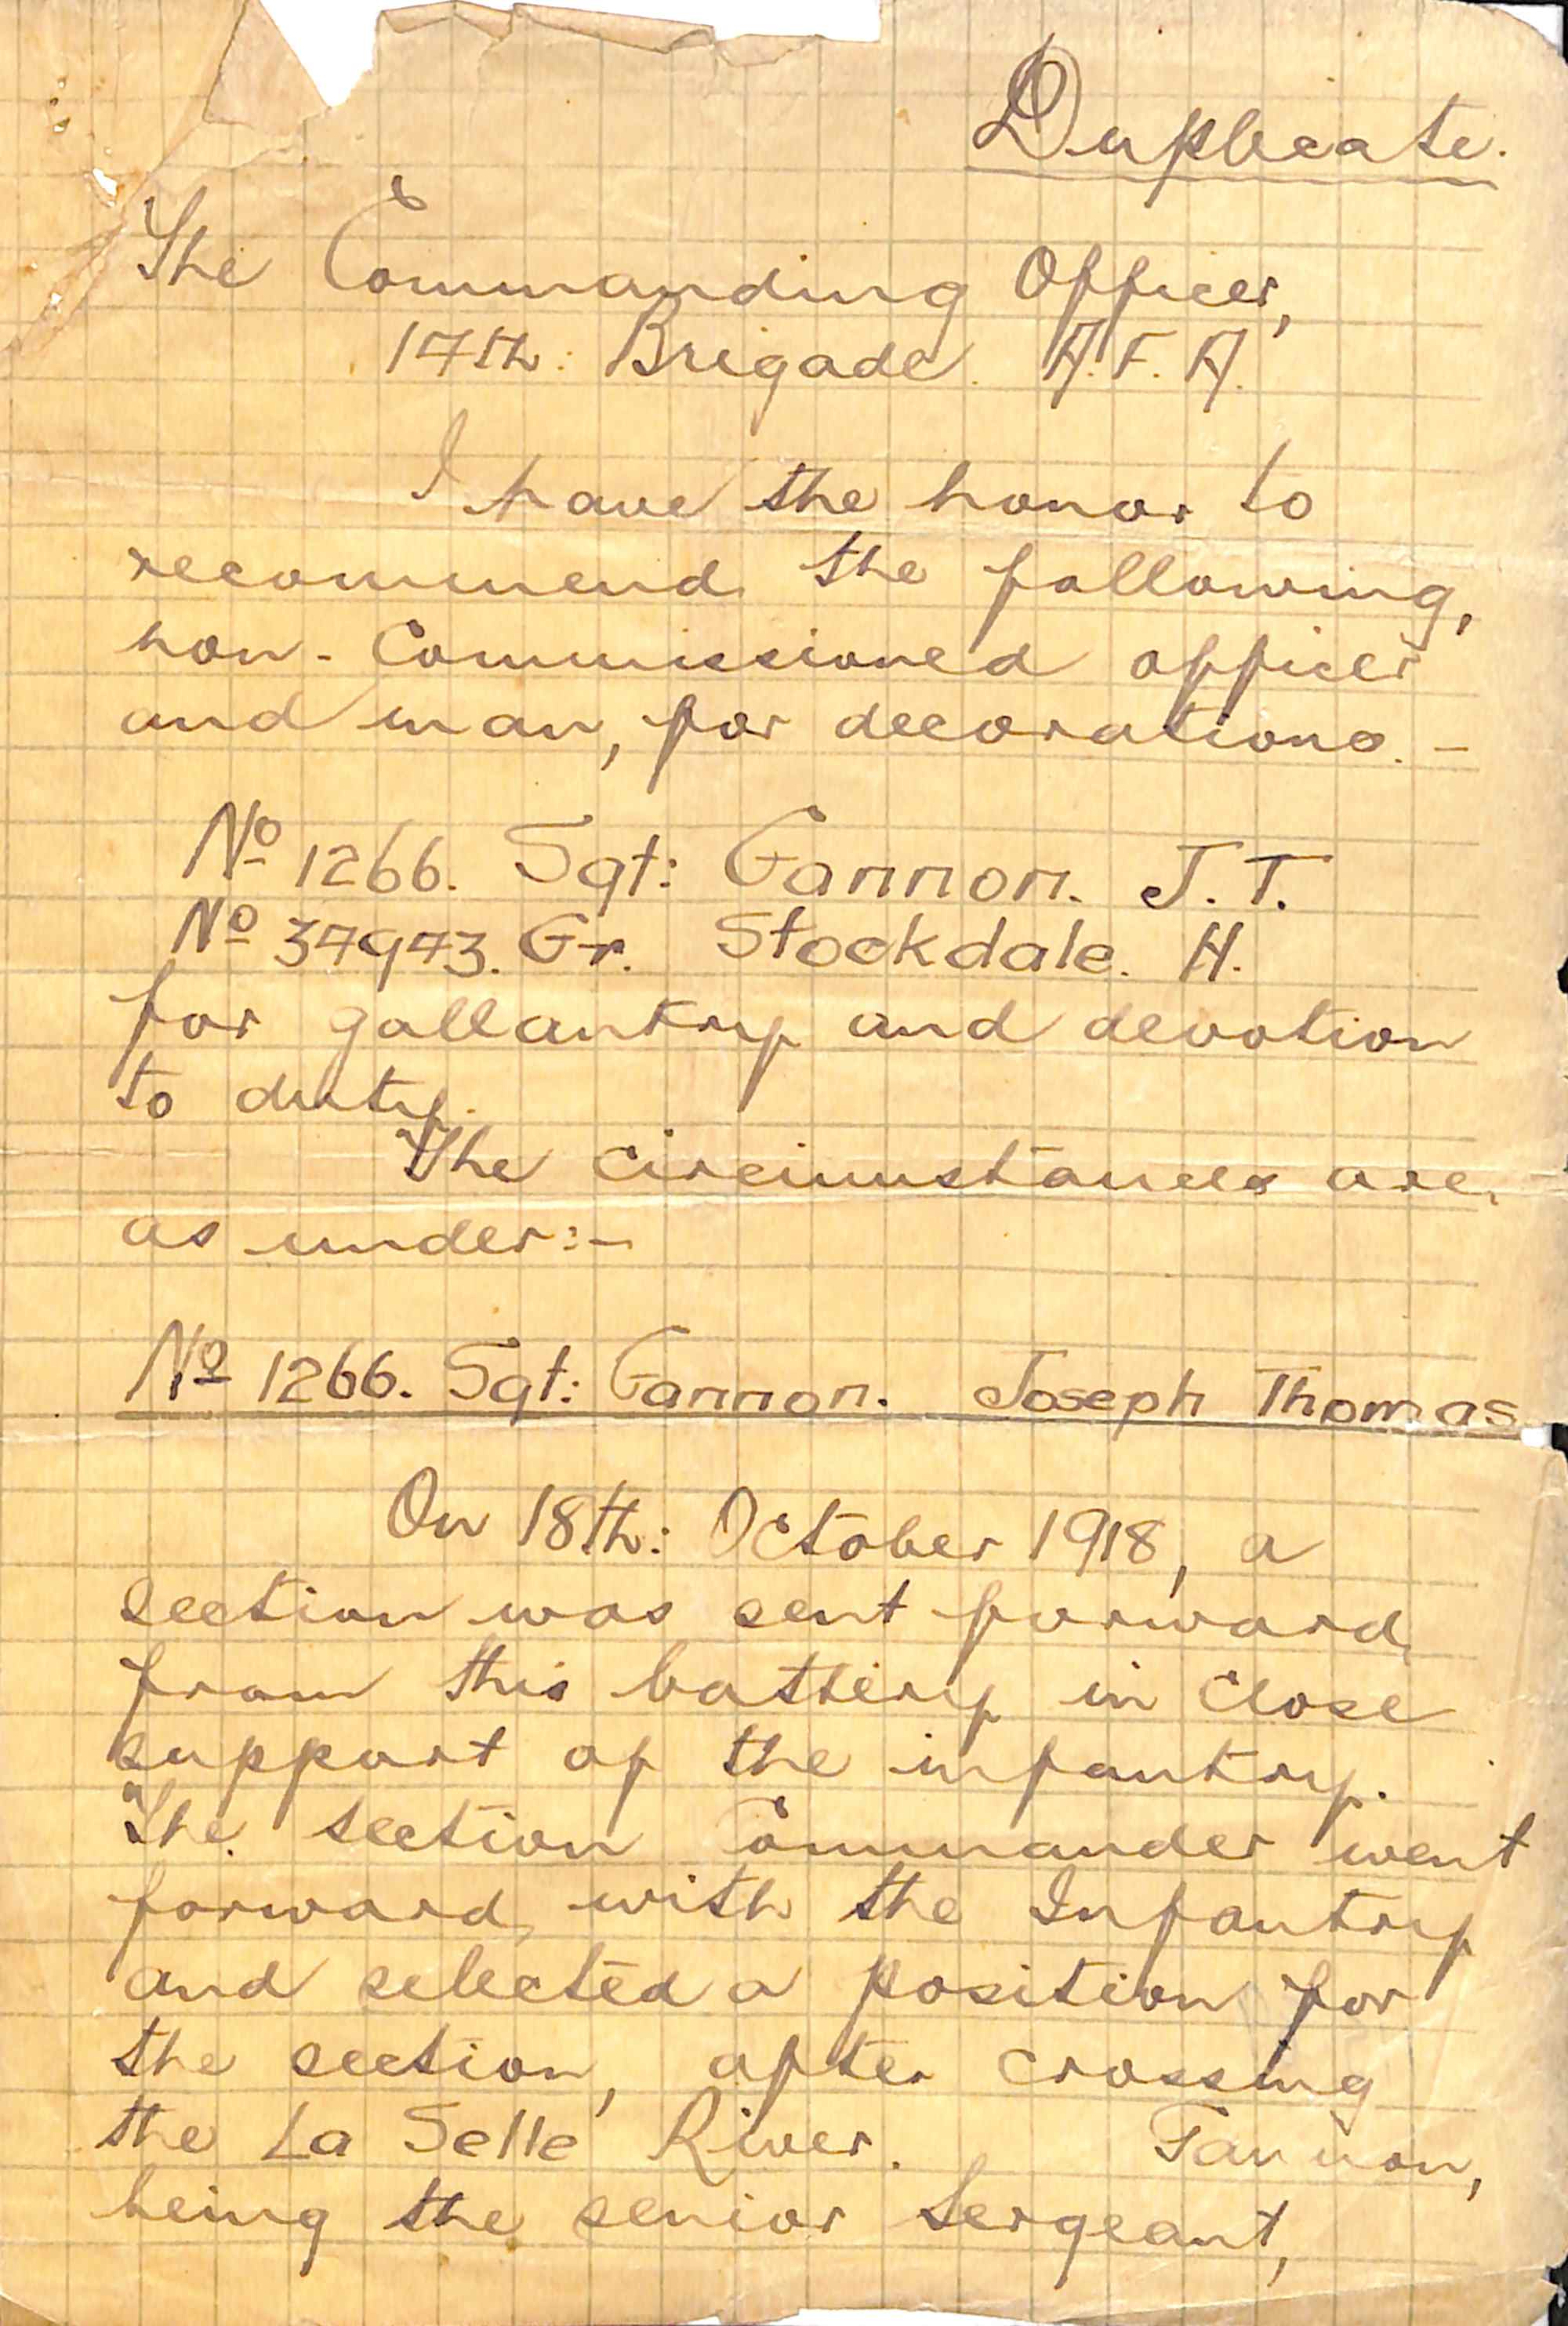 Duplicate.
The Commanding Officer,
17th: Brigade. A.F.A.
I have the honor to
recommend the following,
non-Commissioned officer
and man, for decorations. -
No 1266. Sgt: Gannon. J.T.
No 37973. Gr. Stockdale. H.
for gallantry and devotion
to duty.
The circumstances are,
as under:-
No 1266. Sgt: Gannon. Joseph Thomas
On 18th: October 1918, a
section was sent forward,
from this battery in close
support of the infantry.
The section Commander went
forward, with the Infantry
and selected a position for
the section, after crossing
the La Selle River. Gannon,
being the senior Sergeant,